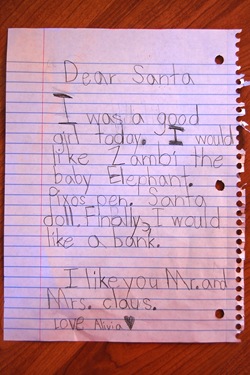 Dear Santa
I was a good
girl today. I would
like Zambi the
baby Elephant.
Pixos pen. Santa
doll. Finally, I would
like a bank.
I like you Mr. and
Mrs. claus.
Love Alivia ♥